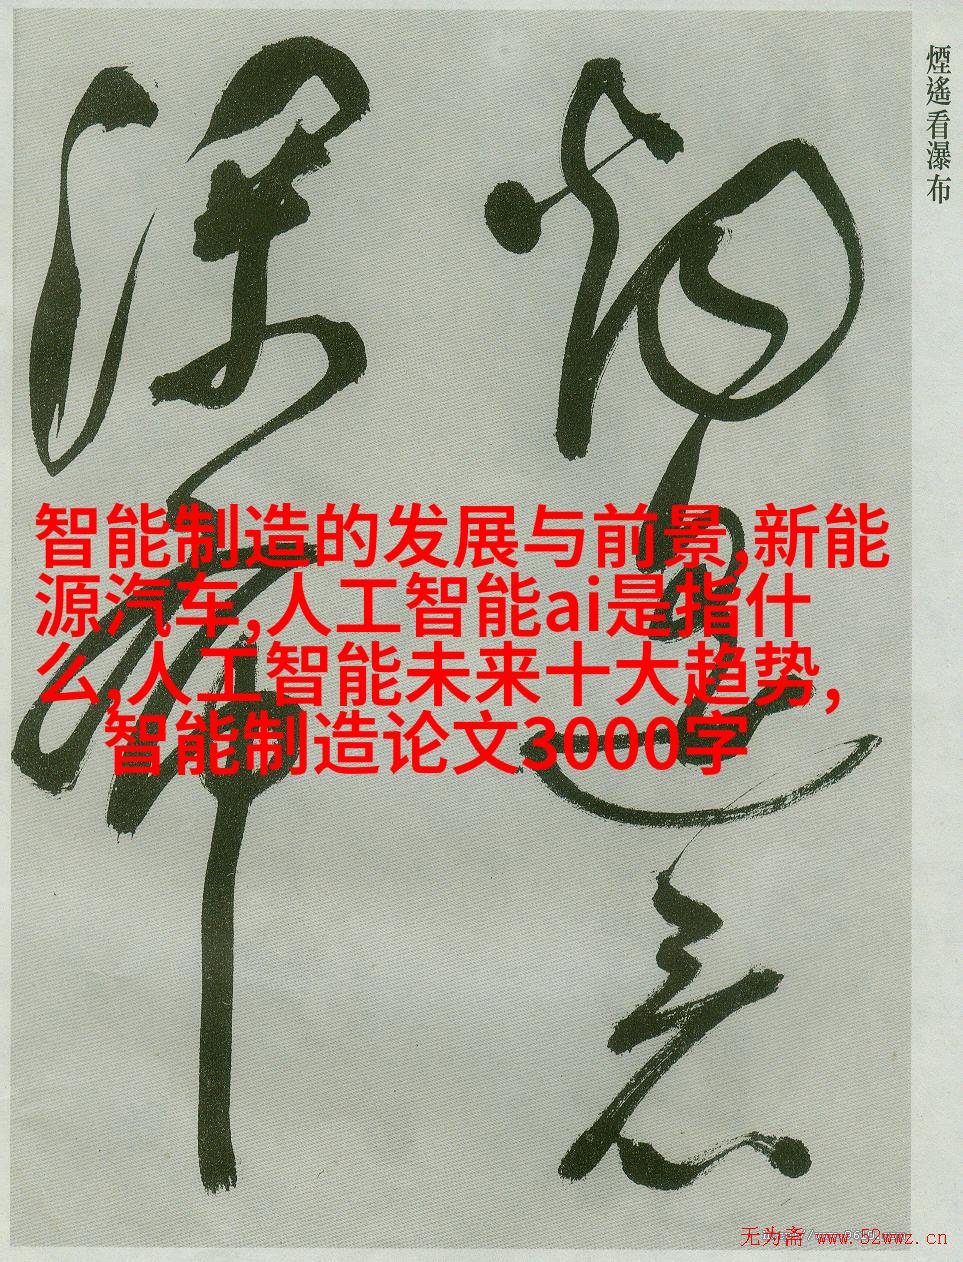 煙遙看瀑布
智能制造的发展与前景,新能
源汽车,人工智能ai是指什
么,人工智能未来十大趋势,
智能制造论文3000字
无为斋 www.52wwz.cn